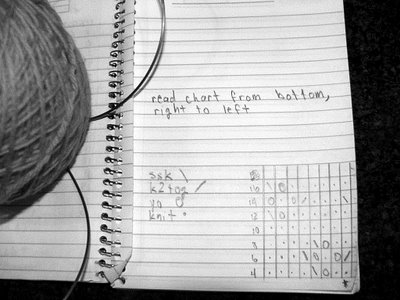 read chart from bottom,
right to left
ssk \
k2tog /
yo O
knit •
16 \ O
14 O O / \
12 \ O
10
8 \ O
6 \ O O /
4 \ O